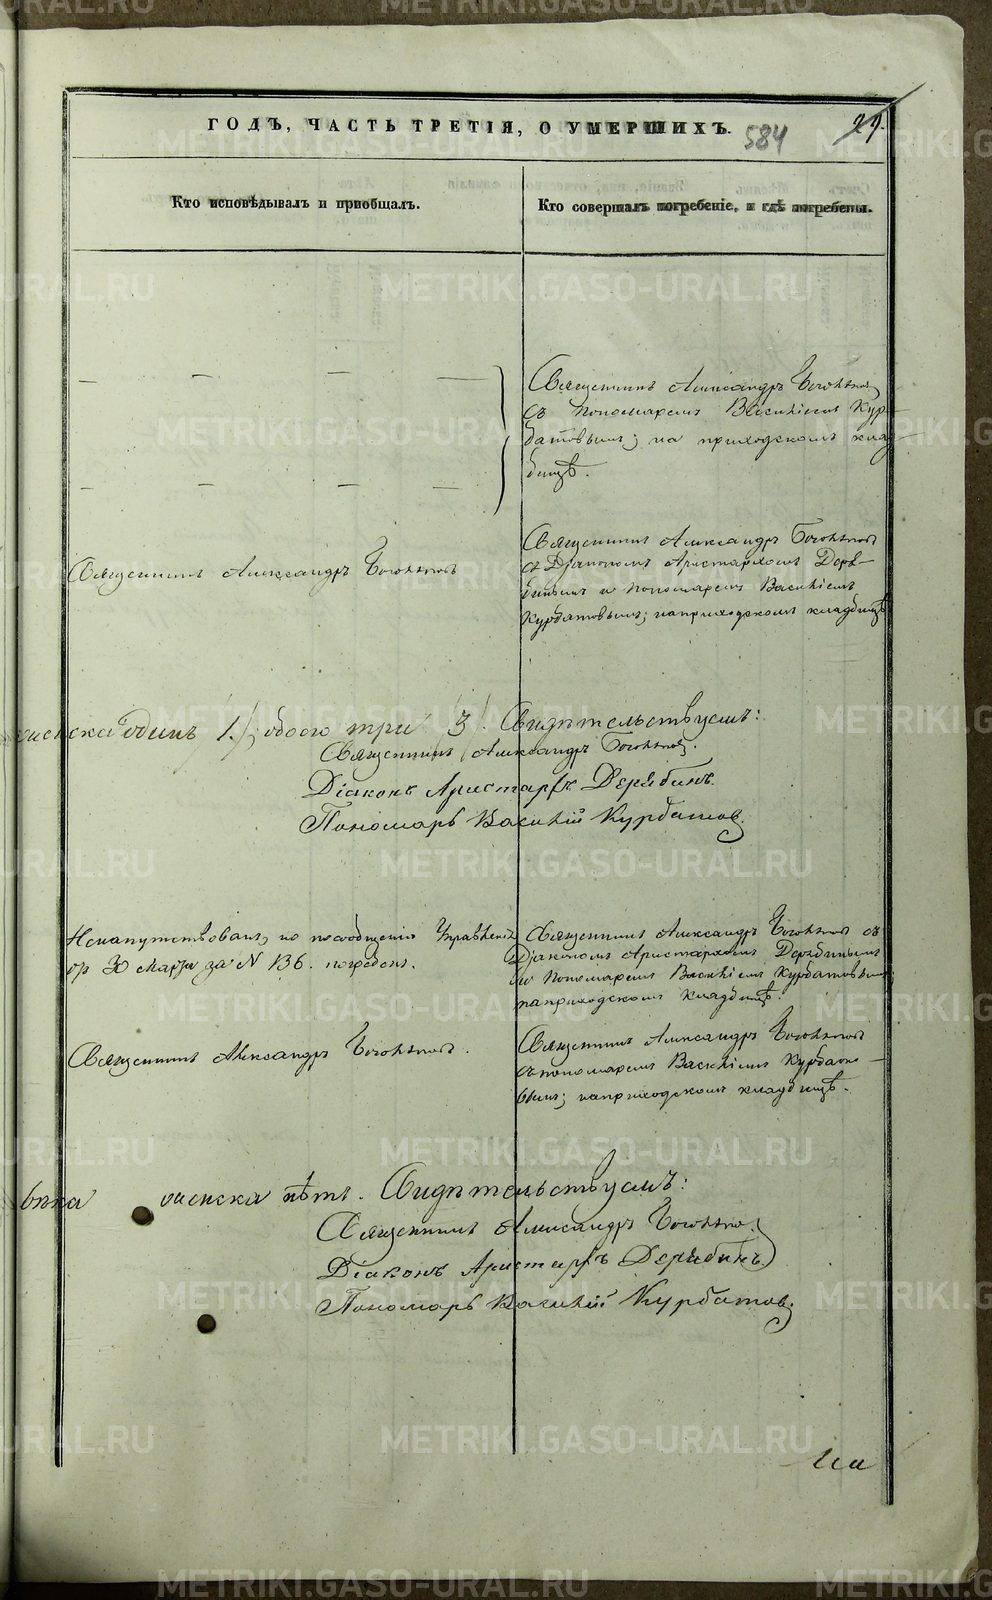 ГОДЪ, ЧАСТЬ ТРЕТІЯ, О УМЕРШИХЪ.
584
29.
Кто исповѣдывалъ и пріобщалъ.
Кто совершалъ погребеніе, и гдѣ погребены.
Священникъ Александръ
съ пономаремъ Василіемъ Кур-
батовымъ; на приходскомъ клад-
бищѣ.
Священникъ Александръ
Священникъ Александръ
съ Діакономъ Аристархомъ Деря-
бинымъ и пономаремъ Василіемъ
Курбатовымъ; на приходскомъ кладбищѣ
женска одинъ /1./, обоего три /3/. Свидѣтельствуемъ:
Священникъ Александръ
Діаконъ Аристархъ Дерябинъ.
Пономарь Василій Курбатов.
Ненапутствованъ, но по сообщенію Управленія
30 Марта за N 136. погребенъ.
Священникъ Александръ съ
Діакономъ Аристархомъ Дерябинымъ
и пономаремъ Василіемъ Курбатовымъ;
на приходскомъ кладбищѣ.
Священникъ Александръ
Священникъ Александръ
съ пономаремъ Василіемъ Курбато-
вымъ; на приходскомъ кладбищѣ.
женска нѣтъ. Свидѣтельствуемъ:
Священникъ Александръ
Діаконъ Аристархъ Дерябинъ.
Пономарь Василій Курбатов.
METRIKI.GASO-URAL.RU